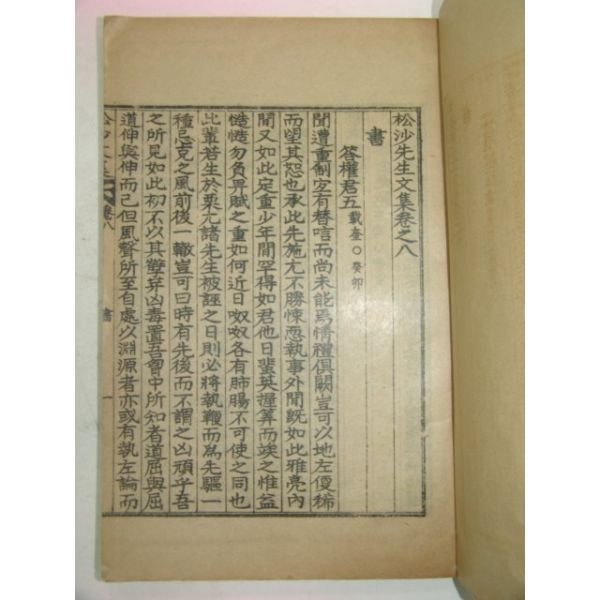 松沙先生文集卷之八
書
答權君五載奎○癸卯
聞遭重制定有替唁而尚未能焉情禮俱闕豈可以地左便稀
而望其恕也承此先施尤不勝悚恧執事外聞旣如此雅亮內
聞又如此定重少年間罕得如君他日蜚英握筭而竢之惟益
慥慥勿負畀賦之重如何近日呶呶各有肺腸不可使之同也
此輩若生於栗尤諸先生被誣之日則必將執鞭而為先驅一
種忌克之風前後一轍豈可曰時有先後而不謂之凶頑乎吾
之所見如此初不以其孼弄凶毒置吾胷中所知者道屈與屈
道伸與伸而已但風聲所至自處以淵源者亦或有執左論而
卷八
書
一